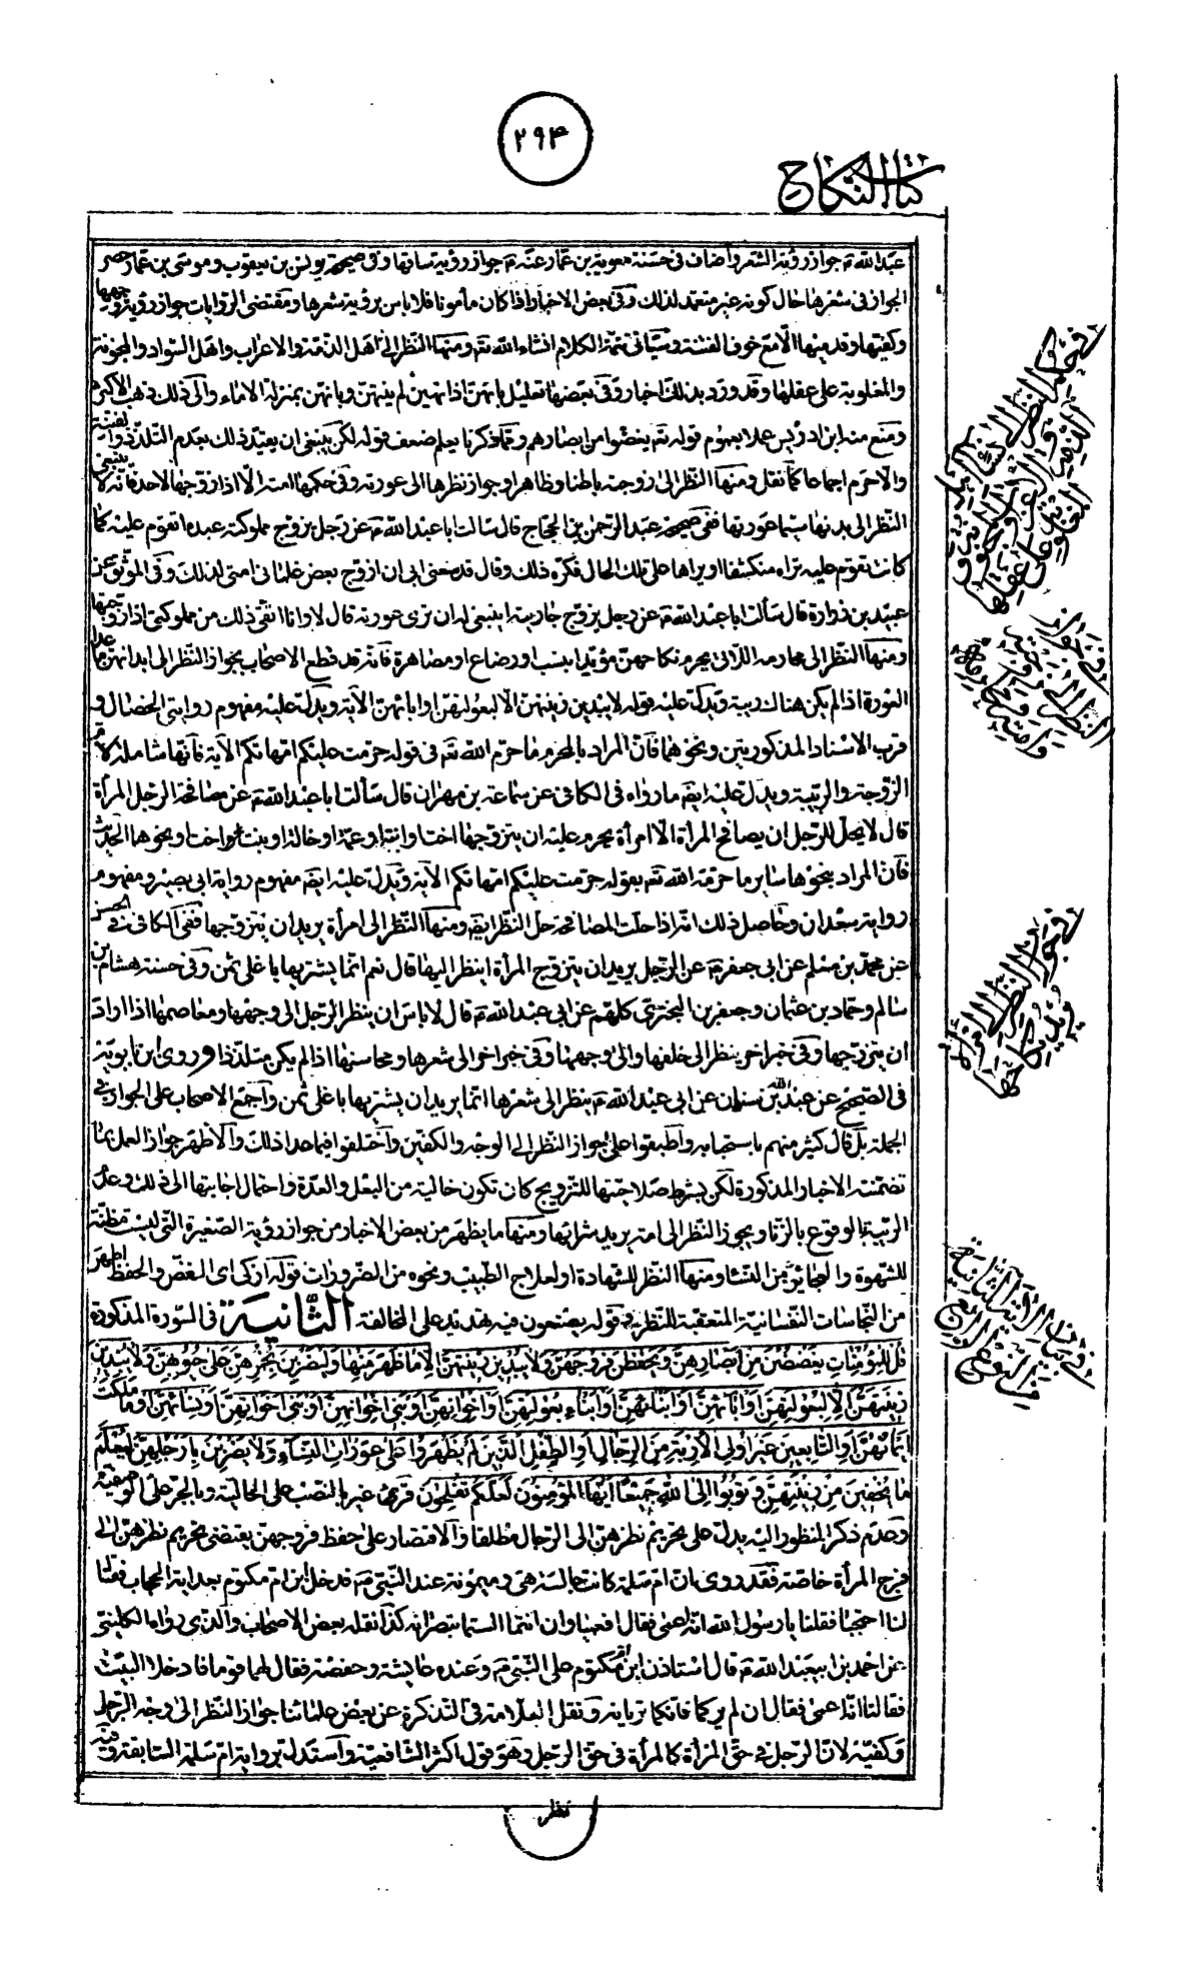 ٢٩٤
كتاب النكاح
عبد الله ع جواز رؤية الشعر وأضاف في حسنة معوية بن عمار عنه ع جواز رؤية ساقها وفي صحيحة يونس بن يعقوب وموسى بن عمار حصر
الجواز في شعرها حال كونه غير متعمد لذلك وفي بعض الاخبار اذا كان مأمونا فلا باس برؤية شعرها ومقتضى الروايات جواز رؤية وجهها
وكفيها وقدميها الّا مع خوف الفتنة وسيأتي تتمة الكلام انشاء الله تعالى ومنها النظر إلى أهل الذمة والاعراب واهل السواد والمجنونة
والمغلوبة على عقلها وقد ورد بذلك اخبار وفي بعضها تعليل بانهن اذا نهين لم ينتهين وبانهن بمنزلة الاماء والى ذلك ذهب الاكثر
ومنع منه ابن ادريس عملا بعموم قوله تعالى يغضوا من ابصارهم ومما ذكرنا يعلم ضعف قوله لكن ينبغي ان يقيد ذلك بعدم التلذذ والفتنة
والّا حرم اجماعا كما نقل ومنها النظر إلى زوجته باطنا وظاهرا وجواز نظرها الى عورته وفي حكمها امته الّا اذا زوجها لاحد فانه لا ينبغي
النظر إلى بدنها سيما عورتها ففي صحيحة عبد الرحمن بن الحجاج قال سالت ابا عبد الله ع عن رجل يزوج مملوكته عبده اتقوم عليه كما
كانت تقوم عليه تراه منكشفا او يراها على تلك الحال فكره ذلك وقال قد منعني ابي ان ازوج بعض غلماني امتي لذلك وفي الموثق عن
عبيد بن زرارة قال سألت ابا عبد الله ع عن رجل يزوج جاريته اينبغي له ان ترى عورته قال لا وانا اتقي ذلك من مملوكتي اذا زوجتها
ومنها النظر الى محارمه اللاتي يحرم نكاحهن مؤبدا بنسب او رضاع او مصاهرة فانه قد قطع الاصحاب بجواز النظر الى ابدانهن ما عدا
العورة اذا لم يكن هناك ريبة ويدل عليه قوله لا يبدين زينتهن الّا لبعولتهن او ابائهن الآية ويدل عليه مفهوم روايتي الخصال و
قرب الاسناد المذكورتين ونحوهما فان المراد بالمحرم ما حرم الله تعالى في قوله حرمت عليكم امهاتكم الآية فانها شاملة لام
الزوجة والربيبة ويدل عليه ايضا ما رواه في الكافي عن سماعة بن مهران قال سألت ابا عبد الله ع عن مصافحة الرجل المرأة
قال لا يحل للرجل ان يصافح المرأة الا امرأة يحرم عليه ان يتزوجها اختا وابنة او عمة او خالة او بنت اخت او نحوها الحديث
فان المراد بنحوها ساير ما حرمه الله تعالى بقوله حرمت عليكم امهاتكم الآية ويدل عليه ايضا مفهوم رواية ابي بصير ومفهوم
رواية سعدان وحاصل ذلك انه اذا حلت المصافحة حل النظر ايضا ومنها النظر إلى امرأة يريد ان يتزوجها ففي الكافي في الحسن
عن محمد بن مسلم عن ابي جعفر ع عن الرجل يريد ان يتزوج المرأة اينظر اليها قال نعم انما يشتريها باغلى ثمن وفي حسنة هشام بن
سالم وحماد بن عثمان وحفص بن البختري كلهم عن ابي عبد الله ع قال لا باس ان ينظر الرجل الى وجهها ومعاصمها اذا اراد
ان يتزوجها وفي خبر اخر ينظر الى خلفها والى وجهها وفي خبر اخر الى شعرها ومحاسنها اذا لم يكن متلذذا وروى ابن بابويه
في الصحيح عن عبد الله بن سنان عن ابي عبد الله ع ينظر إلى شعرها انما يريد ان يشتريها باغلى ثمن وأجمع الاصحاب على الجواز في
الجملة بل قال كثير منهم باستحبابه وأطبقوا على جواز النظر الى الوجه والكفين واختلفوا فيما عدا ذلك والاظهر جواز العمل بما
تضمنته الاخبار المذكورة لكن بشرط صلاحيتها للتزويج كان تكون خالية من البعل والعدة واحتمال اجابتها الى ذلك وعدم
الريبة الوقوع بالزنا ويجوز النظر الى امة يريد شرائها ومنها ما يظهر من بعض الاخبار من جواز رؤية الصغيرة التي ليست مظنة
للشهوة والعجايز من النساء ومنها النظر للشهادة او لعلاج الطبيب ونحوه من الضرورات قوله ازكى اى الغض والحفظ اطهر
من النجاسات النفسانية المتعقبة للنظر وقوله يصنعون فيه تهديد على المخالفة الثانية في السورة المذكورة
قل للمؤمنات يغضضن من ابصارهن ويحفظن فروجهن ولا يبدين زينتهن الا ما ظهر منها وليضربن بخمرهن على جيوبهن ولا يبدين
زينتهن الا لبعولتهن او ابائهن او ابنائهن او ابناء بعولتهن او اخوانهن او بني اخوانهن او بني اخواتهن او نسائهن او ما ملكت
ايمانهن او التابعين غير اولي الاربة من الرجال او الطفل الذين لم يظهروا على عورات النساء ولا يضربن بارجلهن ليعلم
ما يخفين من زينتهن وتوبوا الى الله جميعا ايها المؤمنون لعلكم تفلحون قرئ غير بالنصب على الحالية وبالجر على الوصفية
وعدم ذكر المنظور اليه يدل على تحريم نظرهن إلى الرجال مطلقا والاقتصار على حفظ فروجهن يقتضى تحريم نظرهن الى
فرج المرأة خاصة فقد روى ان ام سلمة كانت جالسة هي وميمونة عند النبي ص فدخل ابن ام مكتوم بعد اية الحجاب فقال
لنا احتجبا فقلنا يا رسول الله انه اعمى فقال افعميا وان انتما الستما تبصرانه كذا نقله بعض الاصحاب والذي رواه الكليني
عن احمد بن ابي عبد الله ع قال استاذن ابن ام مكتوم على النبي ص وعنده عايشة وحفصة فقال لهما قوما فادخلا البيت
فقالتا انه اعمى فقال ان لم يركما فانكما تريانه ونقل العلامة في التذكرة عن بعض علمائنا جواز النظر الى وجه الرجل
وكفيه لان الرجل في حق المرأة كالمرأة في حق الرجل وهو قول اكثر الشافعية واستدل برواية ام سلمة السابقة وفيه
نظر
في جواز النظر الى امراة
يريد نكاحها
في بيان الآية الثانية